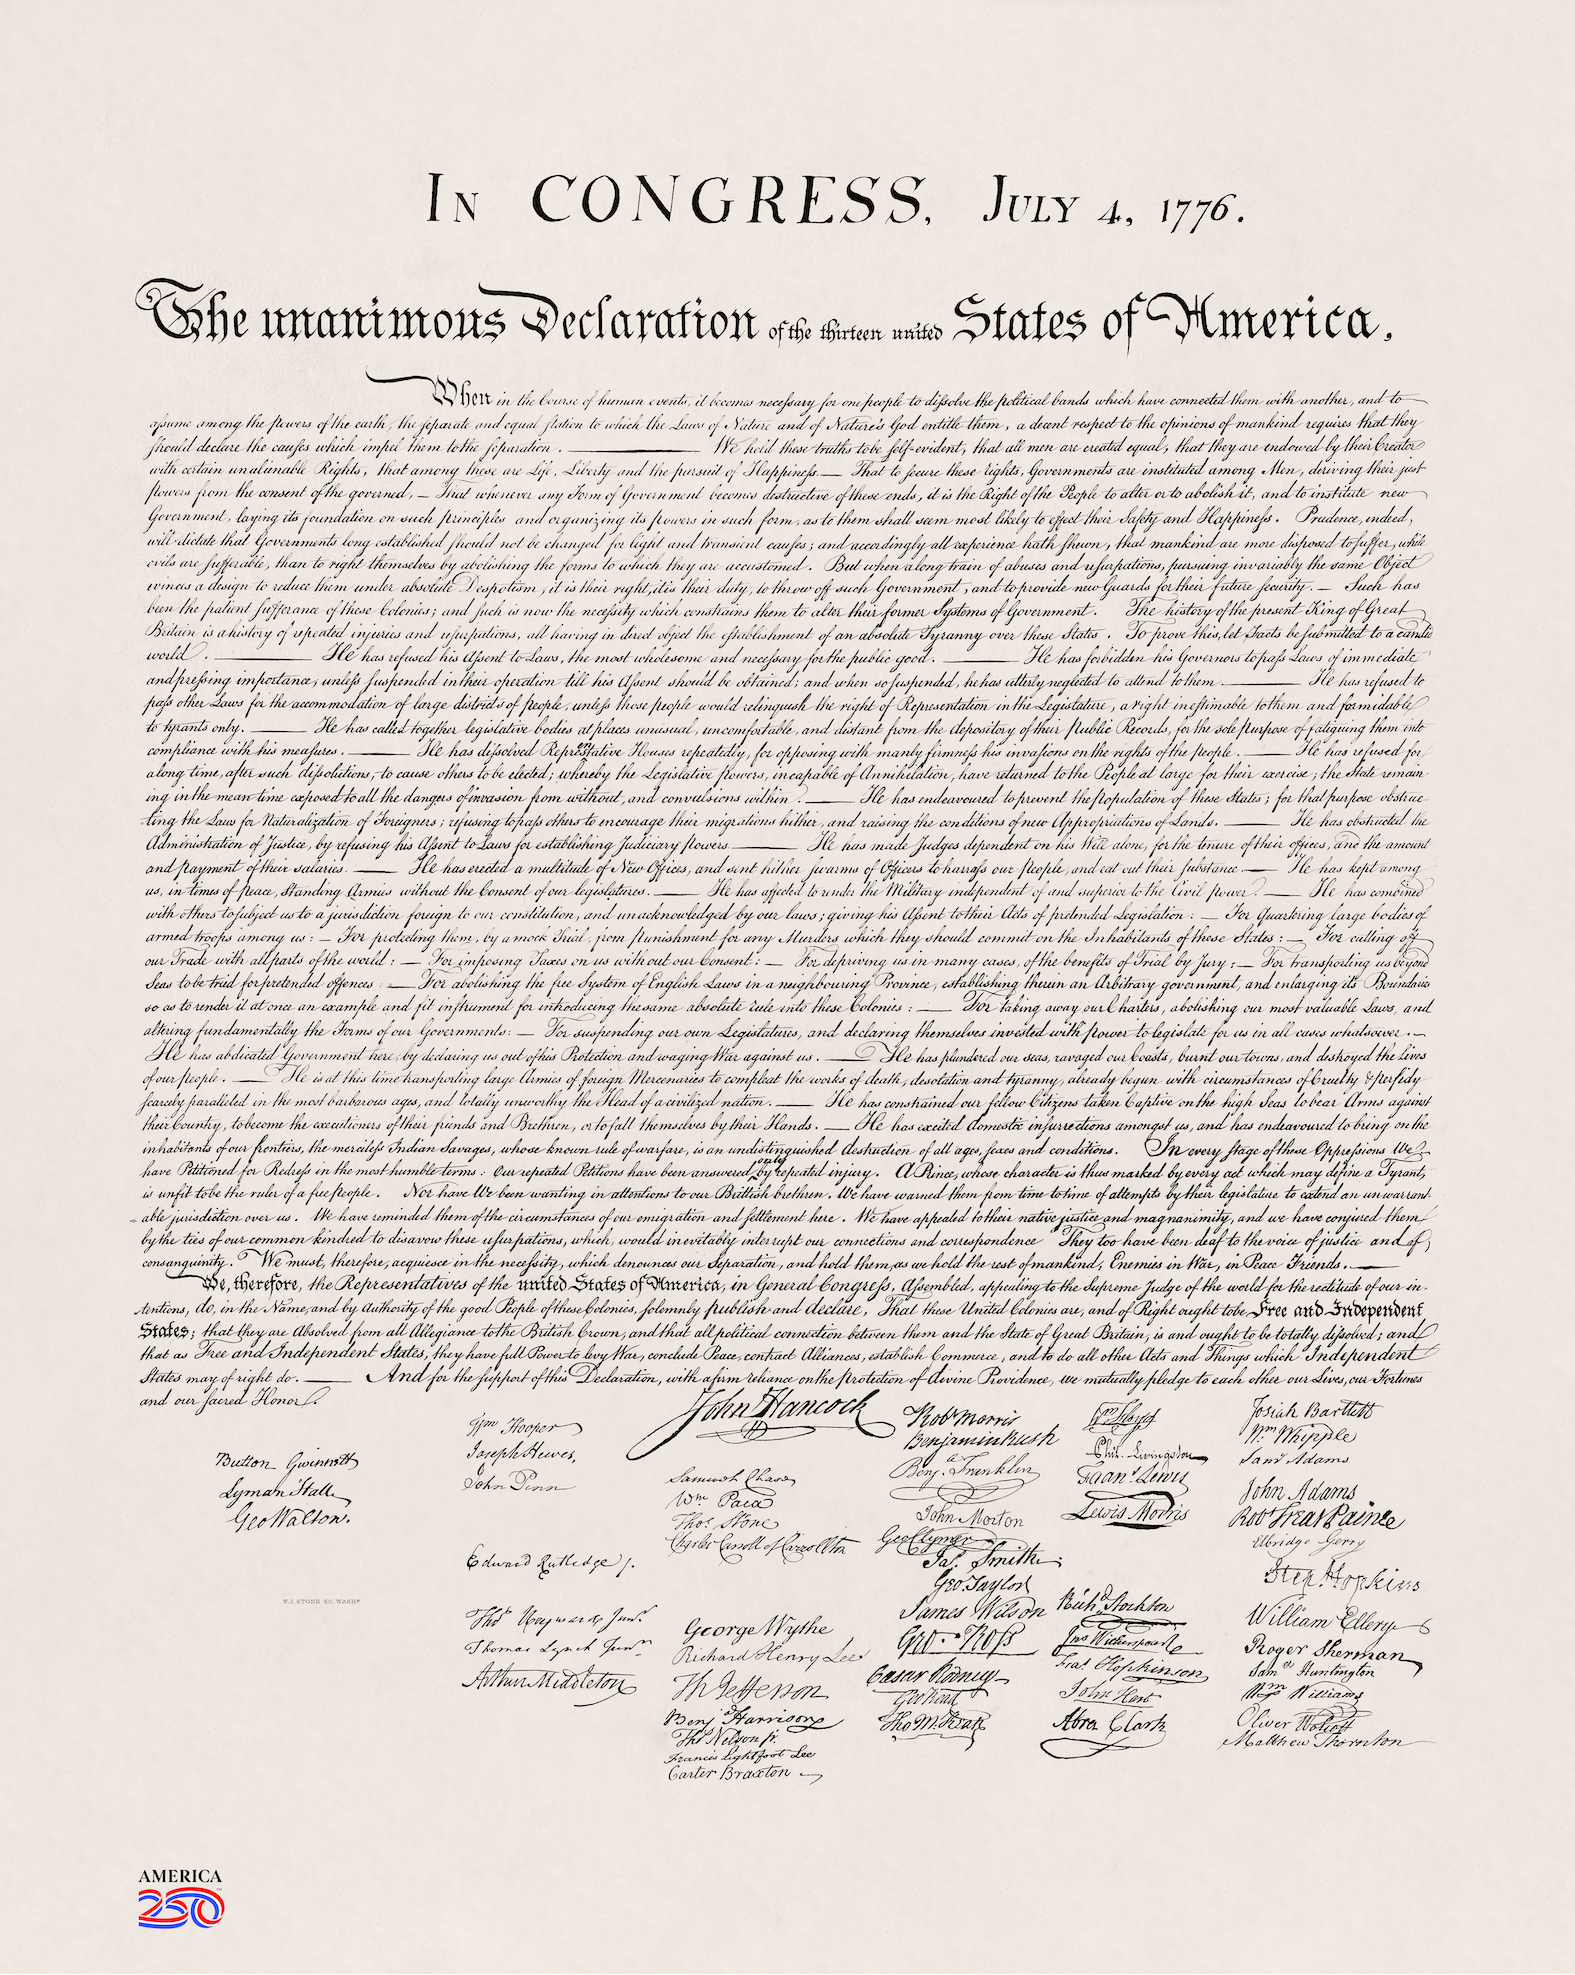 IN CONGRESS, JULY 4, 1776.
The unanimous Declaration of the thirteen united States of America,
When in the Course of human events, it becomes necessary for one people to dissolve the political bands which have connected them with another, and to
assume among the powers of the earth, the separate and equal station to which the Laws of Nature and of Nature's God entitle them, a decent respect to the opinions of mankind requires that they
should declare the causes which impel them to the separation. — We hold these truths to be self-evident, that all men are created equal, that they are endowed by their Creator
with certain unalienable Rights, that among these are Life, Liberty and the pursuit of Happiness.— That to secure these rights, Governments are instituted among Men, deriving their just
powers from the consent of the governed, — That whenever any Form of Government becomes destructive of these ends, it is the Right of the People to alter or to abolish it, and to institute new
Government, laying its foundation on such principles and organizing its powers in such form, as to them shall seem most likely to effect their Safety and Happiness. Prudence, indeed,
will dictate that Governments long established should not be changed for light and transient causes; and accordingly all experience hath shewn, that mankind are more disposed to suffer, while
evils are sufferable, than to right themselves by abolishing the forms to which they are accustomed. But when a long train of abuses and usurpations, pursuing invariably the same Object
evinces a design to reduce them under absolute Despotism, it is their right, it is their duty, to throw off such Government, and to provide new Guards for their future security. — Such has
been the patient sufferance of these Colonies; and such is now the necessity which constrains them to alter their former Systems of Government. The history of the present King of Great
Britain is a history of repeated injuries and usurpations, all having in direct object the establishment of an absolute Tyranny over these States. To prove this, let Facts be submitted to a candid
world. — He has refused his Assent to Laws, the most wholesome and necessary for the public good. — He has forbidden his Governors to pass Laws of immediate
and pressing importance, unless suspended in their operation till his Assent should be obtained; and when so suspended, he has utterly neglected to attend to them. — He has refused to
pass other Laws for the accommodation of large districts of people, unless those people would relinquish the right of Representation in the Legislature, a right inestimable to them and formidable
to tyrants only. — He has called together legislative bodies at places unusual, uncomfortable, and distant from the depository of their Public Records, for the sole purpose of fatiguing them into
compliance with his measures. — He has dissolved Representative Houses repeatedly, for opposing with manly firmness his invasions on the rights of the people. — He has refused for
a long time, after such dissolutions, to cause others to be elected; whereby the Legislative powers, incapable of Annihilation, have returned to the People at large for their exercise; the State remain-
ing in the mean time exposed to all the dangers of invasion from without, and convulsions within. — He has endeavoured to prevent the population of these States; for that purpose obstruc-
ting the Laws for Naturalization of Foreigners; refusing to pass others to encourage their migrations hither, and raising the conditions of new Appropriations of Lands. — He has obstructed the
Administration of Justice, by refusing his Assent to Laws for establishing Judiciary powers — He has made Judges dependent on his Will alone, for the tenure of their offices, and the amount
and payment of their salaries. — He has erected a multitude of New Offices, and sent hither swarms of Officers to harrass our people, and eat out their substance. — He has kept among
us, in times of peace, Standing Armies without the Consent of our legislatures. — He has affected to render the Military independent of and superior to the Civil power. — He has combined
with others to subject us to a jurisdiction foreign to our constitution, and unacknowledged by our laws; giving his Assent to their Acts of pretended Legislation: — For quartering large bodies of
armed troops among us: — For protecting them, by a mock Trial, from punishment for any Murders which they should commit on the Inhabitants of these States: — For cutting off
our Trade with all parts of the world: — For imposing Taxes on us without our Consent: — For depriving us in many cases, of the benefits of Trial by Jury: — For transporting us beyond
Seas to be tried for pretended offences: — For abolishing the free System of English Laws in a neighbouring Province, establishing therein an Arbitrary government, and enlarging its Boundaries
so as to render it at once an example and fit instrument for introducing the same absolute rule into these Colonies: — For taking away our Charters, abolishing our most valuable Laws, and
altering fundamentally the Forms of our Governments: — For suspending our own Legislatures, and declaring themselves invested with power to legislate for us in all cases whatsoever. —
He has abdicated Government here, by declaring us out of his Protection and waging War against us. — He has plundered our seas, ravaged our Coasts, burnt our towns, and destroyed the lives
of our people. — He is at this time transporting large Armies of foreign Mercenaries to compleat the works of death, desolation and tyranny, already begun with circumstances of Cruelty & perfidy
scarcely paralleled in the most barbarous ages, and totally unworthy the Head of a civilized nation. — He has constrained our fellow Citizens taken Captive on the high Seas to bear Arms against
their Country, to become the executioners of their friends and Brethren, or to fall themselves by their Hands. — He has excited domestic insurrections amongst us, and has endeavoured to bring on the
inhabitants of our frontiers, the merciless Indian Savages, whose known rule of warfare, is an undistinguished destruction of all ages, sexes and conditions. In every stage of these Oppressions We
have Petitioned for Redress in the most humble terms: Our repeated Petitions have been answered only by repeated injury. A Prince, whose character is thus marked by every act which may define a Tyrant,
is unfit to be the ruler of a free people. Nor have We been wanting in attentions to our Brittish brethren. We have warned them from time to time of attempts by their legislature to extend an unwarrant-
able jurisdiction over us. We have reminded them of the circumstances of our emigration and settlement here. We have appealed to their native justice and magnanimity, and we have conjured them
by the ties of our common kindred to disavow these usurpations, which, would inevitably interrupt our connections and correspondence They too have been deaf to the voice of justice and of
consanguinity. We must, therefore, acquiesce in the necessity, which denounces our Separation, and hold them, as we hold the rest of mankind, Enemies in War, in Peace Friends. —
We, therefore, the Representatives of the united States of America, in General Congress, Assembled, appealing to the Supreme Judge of the world for the rectitude of our in-
tentions, do, in the Name, and by Authority of the good People of these Colonies, solemnly publish and declare, That these United Colonies are, and of Right ought to be Free and Independent
States; that they are Absolved from all Allegiance to the British Crown, and that all political connection between them and the State of Great Britain, is and ought to be totally dissolved; and
that as Free and Independent States, they have full Power to levy War, conclude Peace, contract Alliances, establish Commerce, and to do all other Acts and Things which Independent
States may of right do. — And for the support of this Declaration, with a firm reliance on the protection of divine Providence, we mutually pledge to each other our Lives, our Fortunes
and our sacred Honor.
Button Gwinnett
Lyman Hall
Geo Walton.
W. J. STONE SC. WASHN
Wm Hooper
Joseph Hewes,
John Penn
Edward Rutledge /.
Thos Heyward Junr.
Thomas Lynch Junr.
Arthur Middleton
John Hancock
Samuel Chase
Wm Paca
Thos. Stone
Charles Carroll of Carrollton
George Wythe
Richard Henry Lee
Th Jefferson
Benj Harrison
Thos Nelson jr.
Francis Lightfoot Lee
Carter Braxton
Robt Morris
Benjamin Rush
Benj. Franklin
John Morton
Geo Clymer
Jas. Smith
Geo. Taylor
James Wilson
Geo. Ross
Caesar Rodney
Geo Read
Tho M:Kean
Wm Floyd
Phil. Livingston
Frans. Lewis
Lewis Morris
Richd. Stockton
Jno Witherspoon
Fras. Hopkinson
John Hart
Abra Clark
Josiah Bartlett
Wm Whipple
Saml Adams
John Adams
Robt Treat Paine
Elbridge Gerry
Step. Hopkins
William Ellery
Roger Sherman
Samel Huntington
Wm Williams
Oliver Wolcott
Matthew Thornton
AMERICA
250